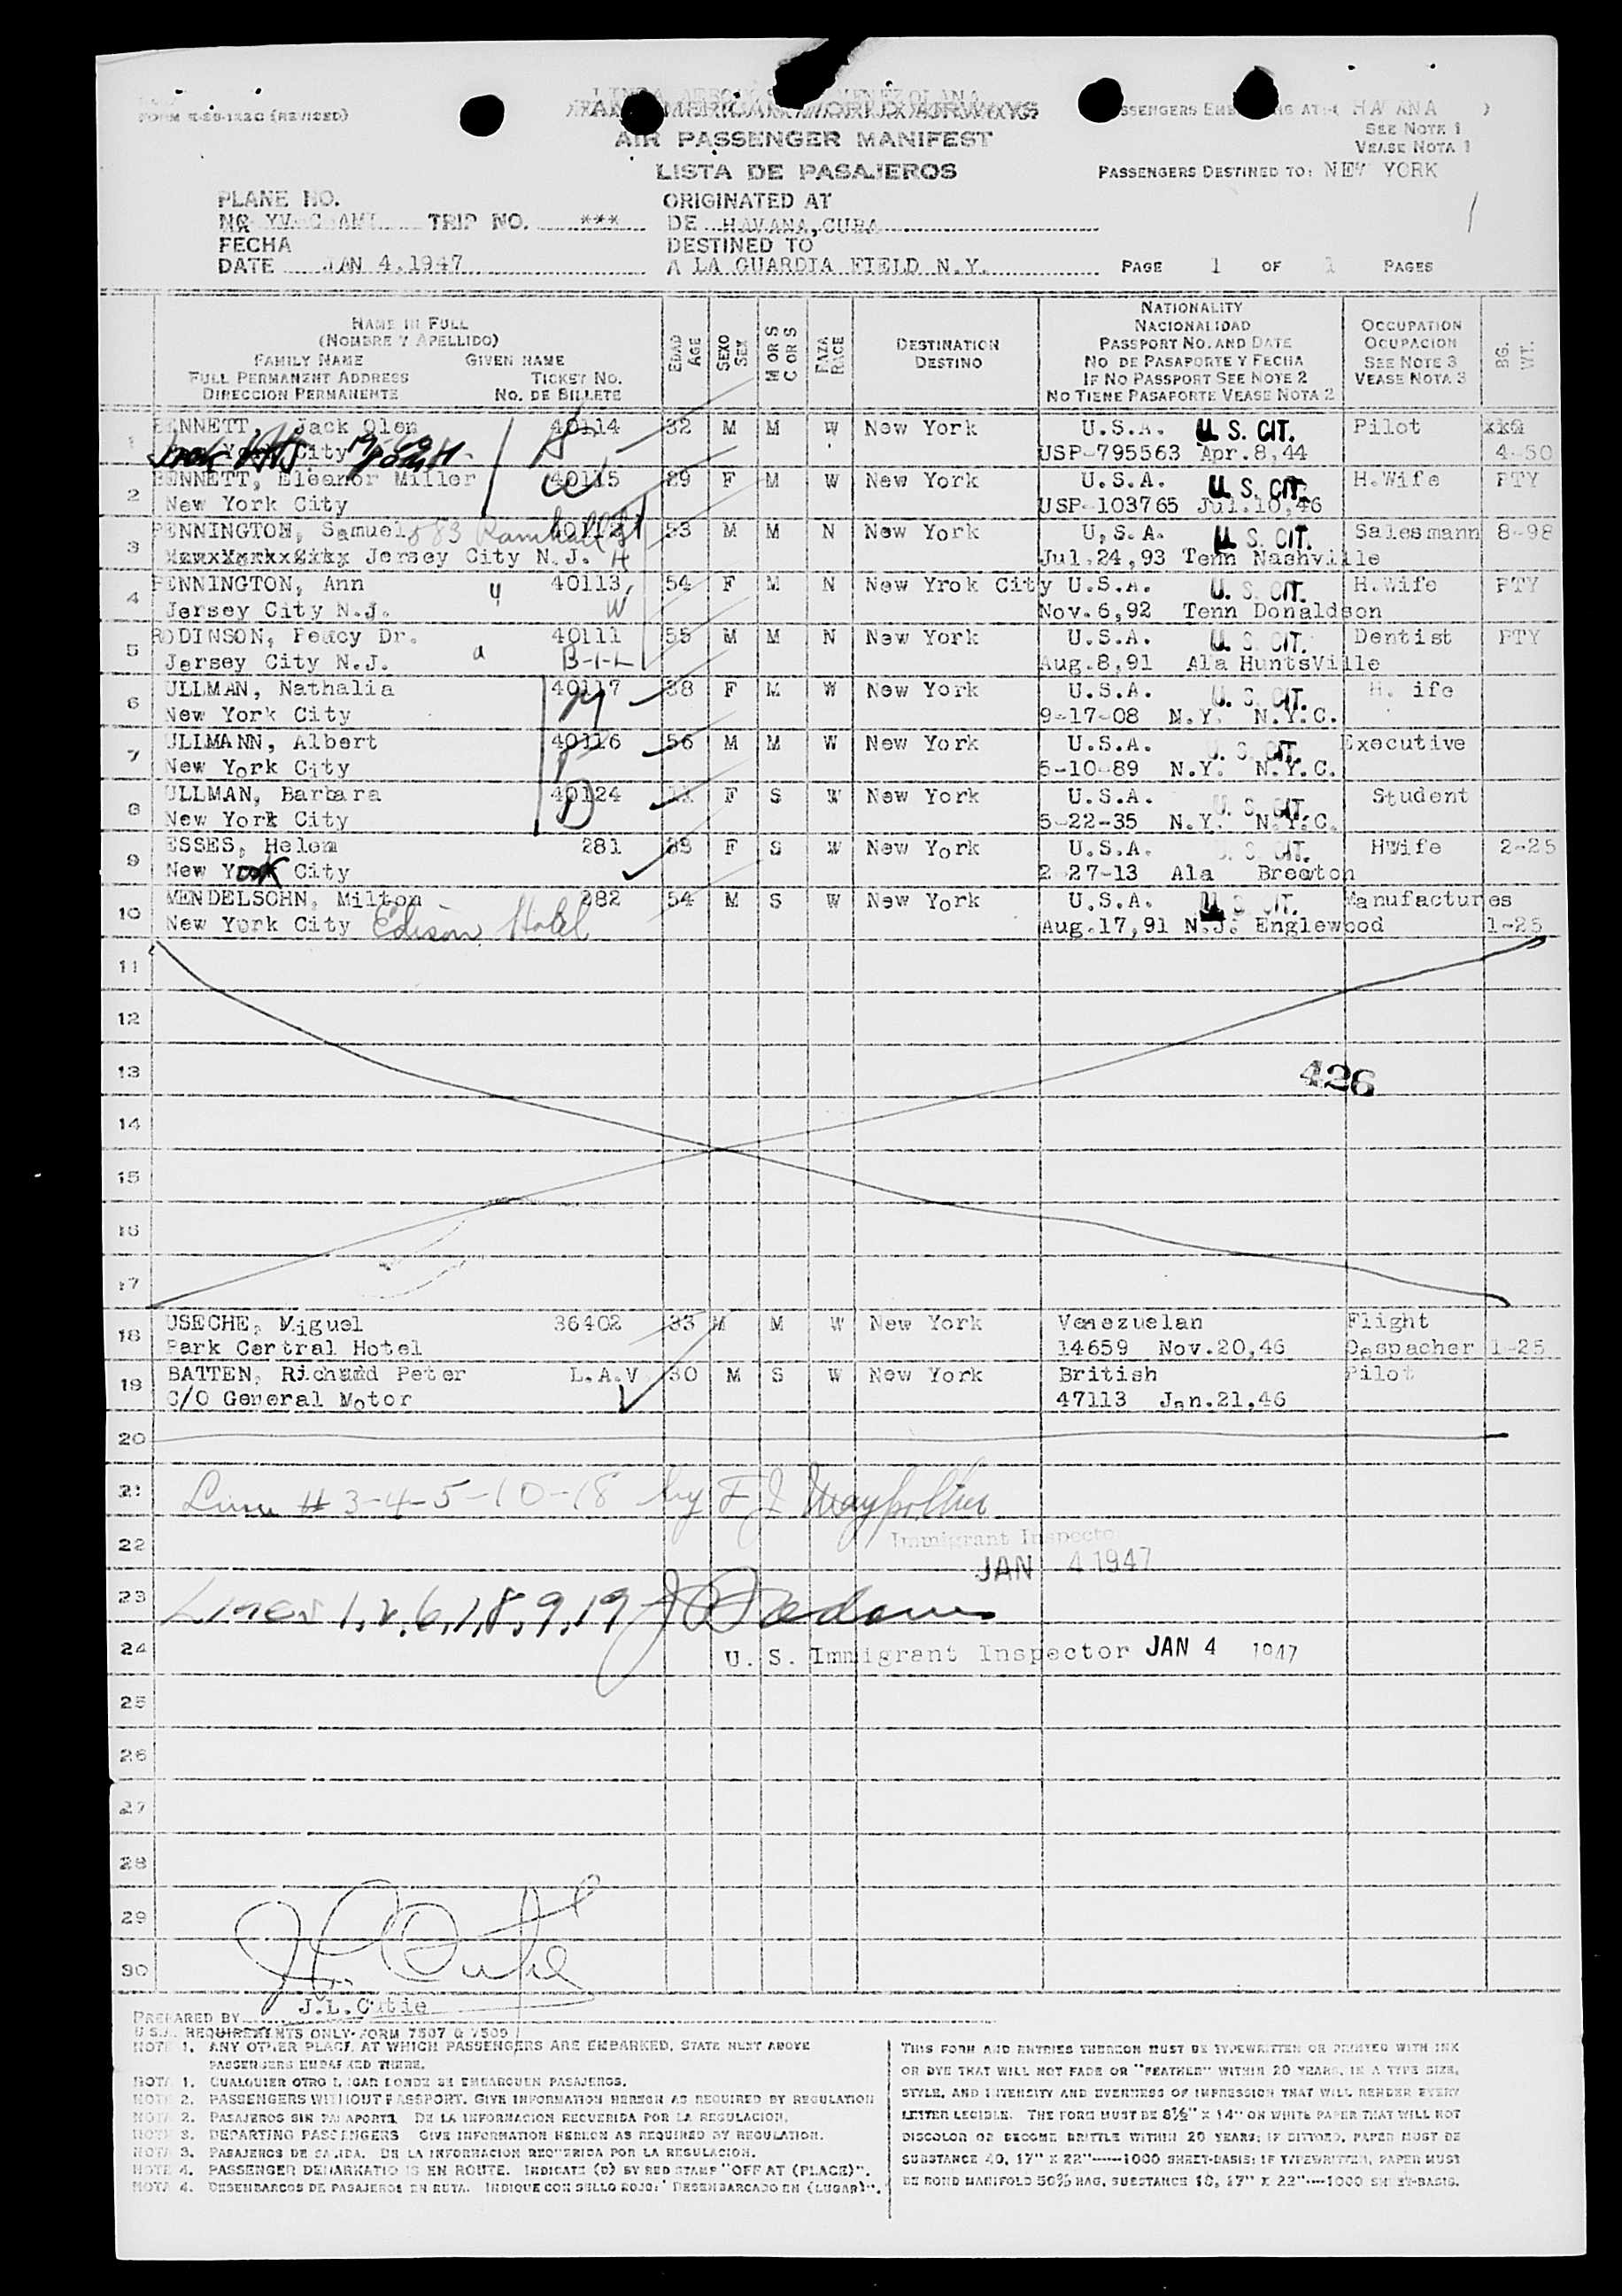 FORM (REVISED)
LINEA AEROPOSTAL VENEZOLANA
PAN AMERICAN WORLD AIRWAYS
PASSENGERS EMBARKING AT: ( HAVANA )
SEE NOTE 1
VEASE NOTA 1
AIR PASSENGER MANIFEST
LISTA DE PASAJEROS
PASSENGERS DESTINED TO: NEW YORK
PLANE NO.
ORIGINATED AT
NR YV-C-AMI TRIP NO. ***
DE HAVANA,CUBA
FECHA
DESTINED TO
DATE JAN 4,1947
A LA GUARDIA FIELD N.Y.
PAGE 1 OF 1 PAGES
NAME IN FULL
(NOMBRE Y APELLIDO)
FAMILY NAME GIVEN NAME
FULL PERMANENT ADDRESS TICKET NO.
DIRECCION PERMANENTE NO. DE BILLETE
EDAD AGE
SEXO SEX
M OR S
C OR S
RAZA RACE
DESTINATION
DESTINO
NATIONALITY
NACIONALIDAD
PASSPORT NO. AND DATE
NO DE PASAPORTE Y FECHA
IF NO PASSPORT SEE NOTE 2
NO TIENE PASAPORTE VEASE NOTA 2
OCCUPATION
OCUPACION
SEE NOTE 3
VEASE NOTA 3
BG. WT.
1 BENNETT, Jack Olen 40114 32 M M W New York U.S.A. U. S. CIT. Pilot
New York City USP-795563 Apr.8,44 4-50
2 BENNETT, Eleanor Miller 40115 29 F M W New York U.S.A. U. S. CIT. H.Wife PTY
New York City USP-103765 Jul.10,46
3 PENNINGTON, Samuel 40112 53 M M N New York U.S.A. U. S. CIT. Salesmann 8-98
NewxYorkxCity Jersey City N.J. H Jul.24,93 Tenn Nashville
4 PENNINGTON, Ann 40113 54 F M N New Yrok City U.S.A. U. S. CIT. H.Wife PTY
Jersey City N.J. W Nov.6,92 Tenn Donaldson
5 RODINSON, Peucy Dr. 40111 55 M M N New York U.S.A. U. S. CIT. Dentist PTY
Jersey City N.J. B-I-L Aug.8,91 Ala HuntsVille
6 ULLMAN, Nathalia 40117 38 F M W New York U.S.A. U. S. CIT. H. ife
New York City 9-17-08 N.Y. N.Y.C.
7 ULLMANN, Albert 40116 56 M M W New York U.S.A. U. S. CIT. Executive
New York City 5-10-89 N.Y. N.Y.C.
8 ULLMAN, Barbara 40124 11 F S W New York U.S.A. U. S. CIT. Student
New York City 5-22-35 N.Y. N.Y.C.
9 ESSES, Helen 281 33 F S W New York U.S.A. U. S. CIT. HWife 2-25
New York City 2-27-13 Ala Brewton
10 MENDELSOHN, Milton 282 54 M S W New York U.S.A. U. S. CIT. Manufactures
New York City Edison Hotel Aug.17,91 N.J. Englewood 1-25
11
12
13 426
14
15
16
17
18 USECHE, Miguel 36402 33 M M W New York Venezuelan Flight
Park Central Hotel 14659 Nov.20,46 Despacher 1-25
19 BATTEN, Richard Peter L.A.V. 30 M S W New York British Pilot
C/O General Motor 47113 Jan.21,46
20
21 Lines # 3-4-5-10-18 by F J
22 Immigrant Inspector
JAN 4 1947
23 Lines 1,2,6,7,8,9,19
24 U. S. Immigrant Inspector JAN 4 1947
25
26
27
28
29
30
PREPARED BY J.L.Cutie
U.S.A. REQUIREMENTS ONLY-FORM 7507 & 7509
NOTE 1. ANY OTHER PLACE AT WHICH PASSENGERS ARE EMBARKED, STATE NEXT ABOVE
PASSENGERS EMBARKED THERE.
NOTA 1. CUALQUIER OTRO LUGAR DONDE SE EMBARQUEN PASAJEROS.
NOTE 2. PASSENGERS WITHOUT PASSPORT. GIVE INFORMATION HEREON AS REQUIRED BY REGULATION
NOTA 2. PASAJEROS SIN PASAPORTE DE LA INFORMACION REQUERIDA POR LA REGULACION.
NOTE 3. DEPARTING PASSENGERS GIVE INFORMATION HEREON AS REQUIRED BY REGULATION.
NOTA 3. PASAJEROS DE SALIDA. DE LA INFORMACION REQUERIDA POR LA REGULACION.
NOTE 4. PASSENGER DEBARKATION IS EN ROUTE. INDICATE (D) BY RED STAMP "OFF AT (PLACE)".
NOTA 4. DESEMBARCOS DE PASAJEROS EN RUTA. INDIQUE CON SELLO ROJO: "DESEMBARCADO EN (LUGAR)".
THIS FORM AND ENTRIES THEREON MUST BE TYPEWRITTEN OR PRINTED WITH INK
OR DYE THAT WILL NOT FADE OR "FEATHER" WITHIN 20 YEARS, IN A TYPE SIZE,
STYLE, AND INTENSITY AND EVENNESS OF IMPRESSION THAT WILL RENDER EVERY
LETTER LEGIBLE. THE FORM MUST BE 8½" X 14" ON WHITE PAPER THAT WILL NOT
DISCOLOR OR BECOME BRITTLE WITHIN 20 YEARS; IF DITTOED, PAPER MUST BE
SUBSTANCE 40, 17" X 22"-----1000 SHEET-BASIS; IF TYPEWRITTEN, PAPER MUST
BE BOND MANIFOLD 50% RAG, SUBSTANCE 18, 17" X 22"----1000 SHEET-BASIS.